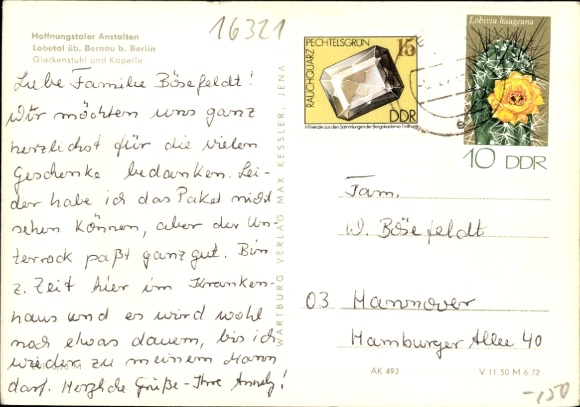 16321
Hoffnungstaler Anstalten
Lobetal üb. Bernau b. Berlin
Glockenstuhl und Kapelle
Liebe Familie Bösefeldt!
Wir möchten uns ganz
herzlichst für die vielen
Geschenke bedanken. Lei-
der habe ich das Paket nicht
sehen können, aber der Un-
terrock paßt ganz gut. Bin
z. Zeit hier im Kranken-
haus und es wird wohl
noch etwas dauern, bis ich
wieder zu meinem Mann
darf. Herzliche Grüße - Ihre
WARTBURG VERLAG MAX KESSLER, JENA
PECHTELSGRÜN
15
RAUCHQUARZ
DDR
Minerale aus den Sammlungen der Bergakademie Freiberg
Lobivia haageana
10 DDR
Fam.
W. Bösefeldt
03 Hannover
Hamburger Allee 40
AK 493
V 11 50 M 6 72
-150